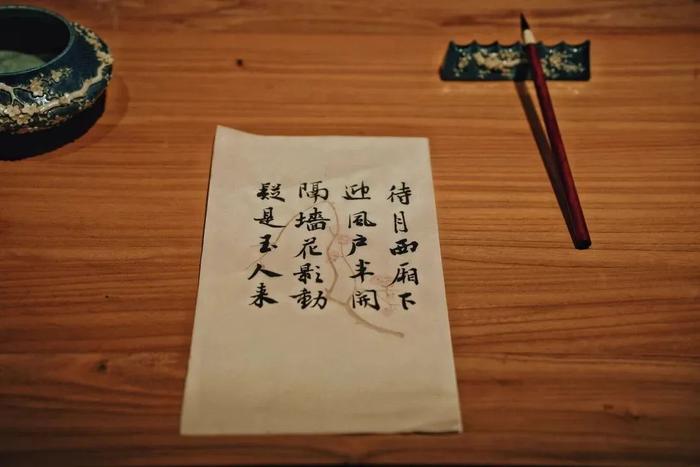 待月西厢下
迎風户半開
隔墻花影動
疑是玉人来